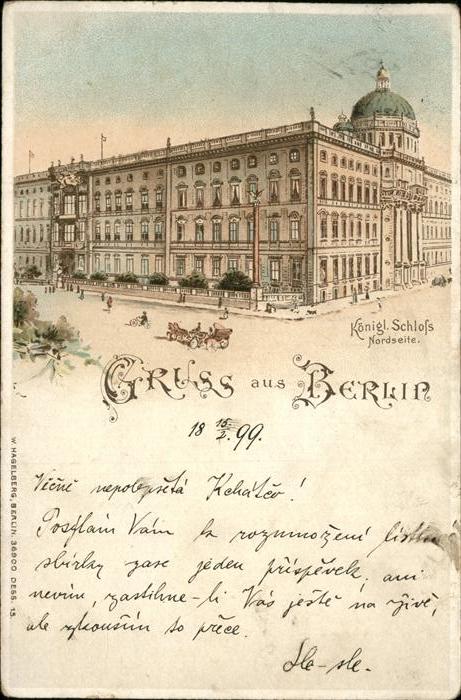 Königl. Schloſs
Nordseite.
Gruss aus Berlin
18 15/2. 99.
Věčně !
Posílám Vám k rozmnožení
sbírky zase jeden příspěvek, ani
nevím, zastihne-li Vás ještě na živě,
ale zkouším to přece.
W. HAGELBERG, BERLIN. 36900 DESS. 13.